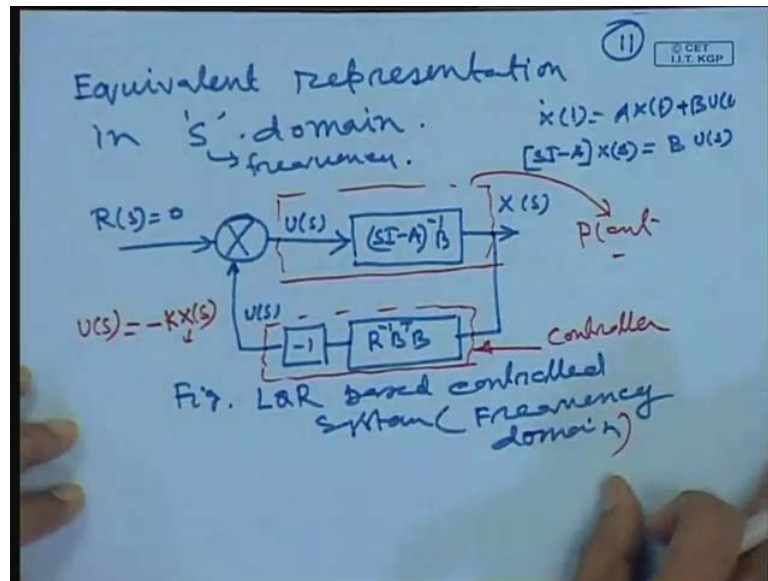 11
© CET
I.I.T. KGP
Equivalent representation
in 's' domain.
→ frequency.
ẋ(t) = AX(t) + BU(t
[SI-A] X(s) = B U(s)
R(s)=0
U(s)
(SI-A)⁻¹B
X(s)
Plant
U(s) = -KX(s)
U(s)
-1
R⁻¹BᵀB
Controller
Fig. LQR based controlled
System (Frequency
domain)